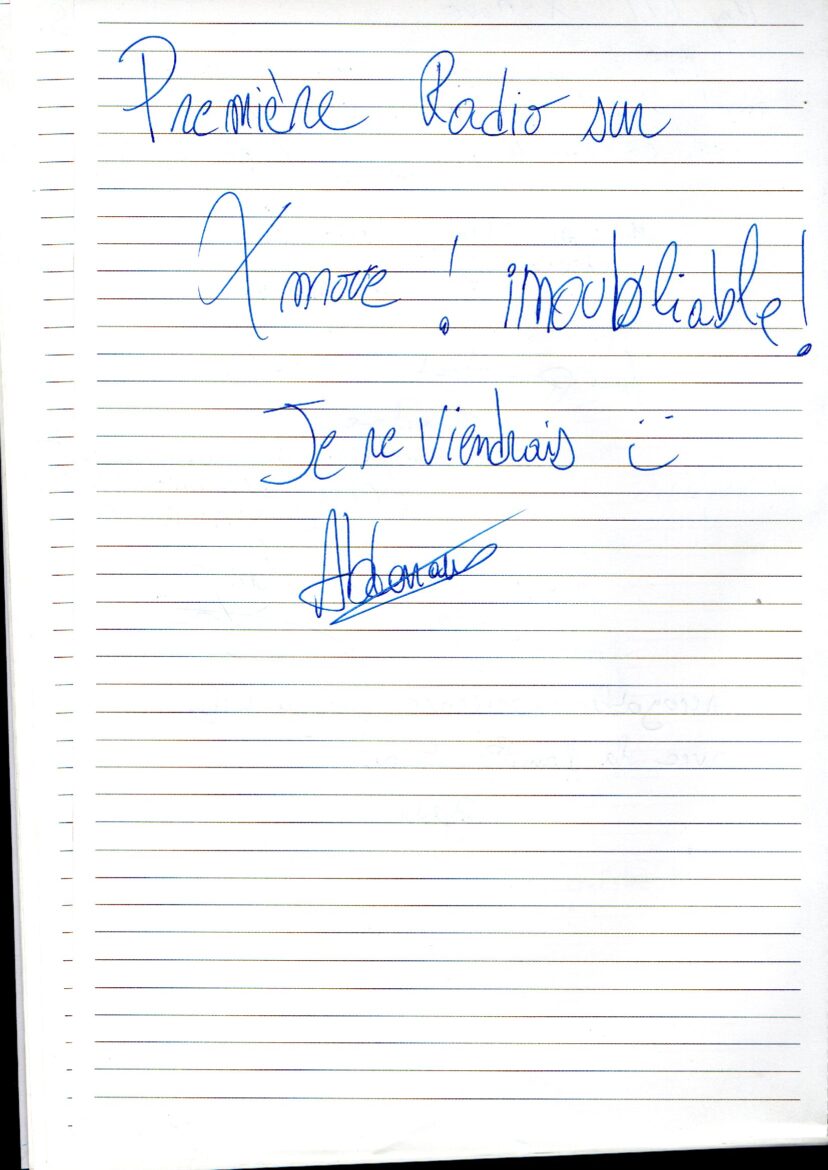 Première Radio sur
X move ! imoubliable !
Je re viendrais :)